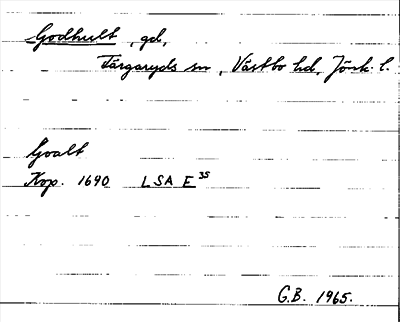 Godhult, gd,
Färgaryds sn, Västbo hd, Jönk. l.
Goalt
Kop. 1690 LSA E 35
G.B. 1965.